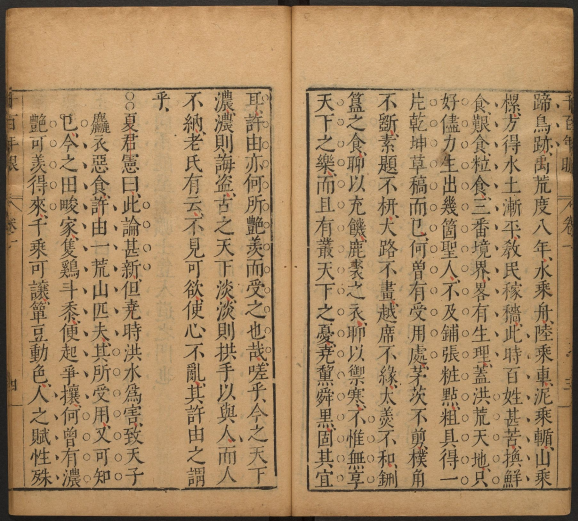 蹄鳥跡禹荒度八年水乘舟陸乘車泥乘輴山乘
樏方得水土漸平教民稼穡此時百姓甚苦換鮮
食艱食粒食三番境界畧有生理蓋洪荒天地只
好儘力生出幾箇聖人不及鋪張粧點粗具得一
片乾坤草稿而已何曾有受用處茅茨不剪樸角
不斵素題不枅大路不畫越席不緣太羮不和鉶
簋之食聊以充饑鹿裘之衣聊以禦寒不惟無享
天下之樂而且有叢天下之憂堯薰舜黑固其宜
千百年眼
卷一
三
耳許由亦何所艷羡而受之也哉嗟乎今之天下
濃濃則誨盜古之天下淡淡則拱手以與人而人
不納老氏有云不見可欲使心不亂其許由之謂
乎
夏君憲曰此論甚新但堯時洪水爲害致天子
麤衣惡食許由一荒山匹夫其所受用又可知
已今之田畯家隻鷄斗黍便起爭攘何曾有濃
艷可羡得來千乘可讓簞豆動色人之賦性殊
千百年眼
卷一
四